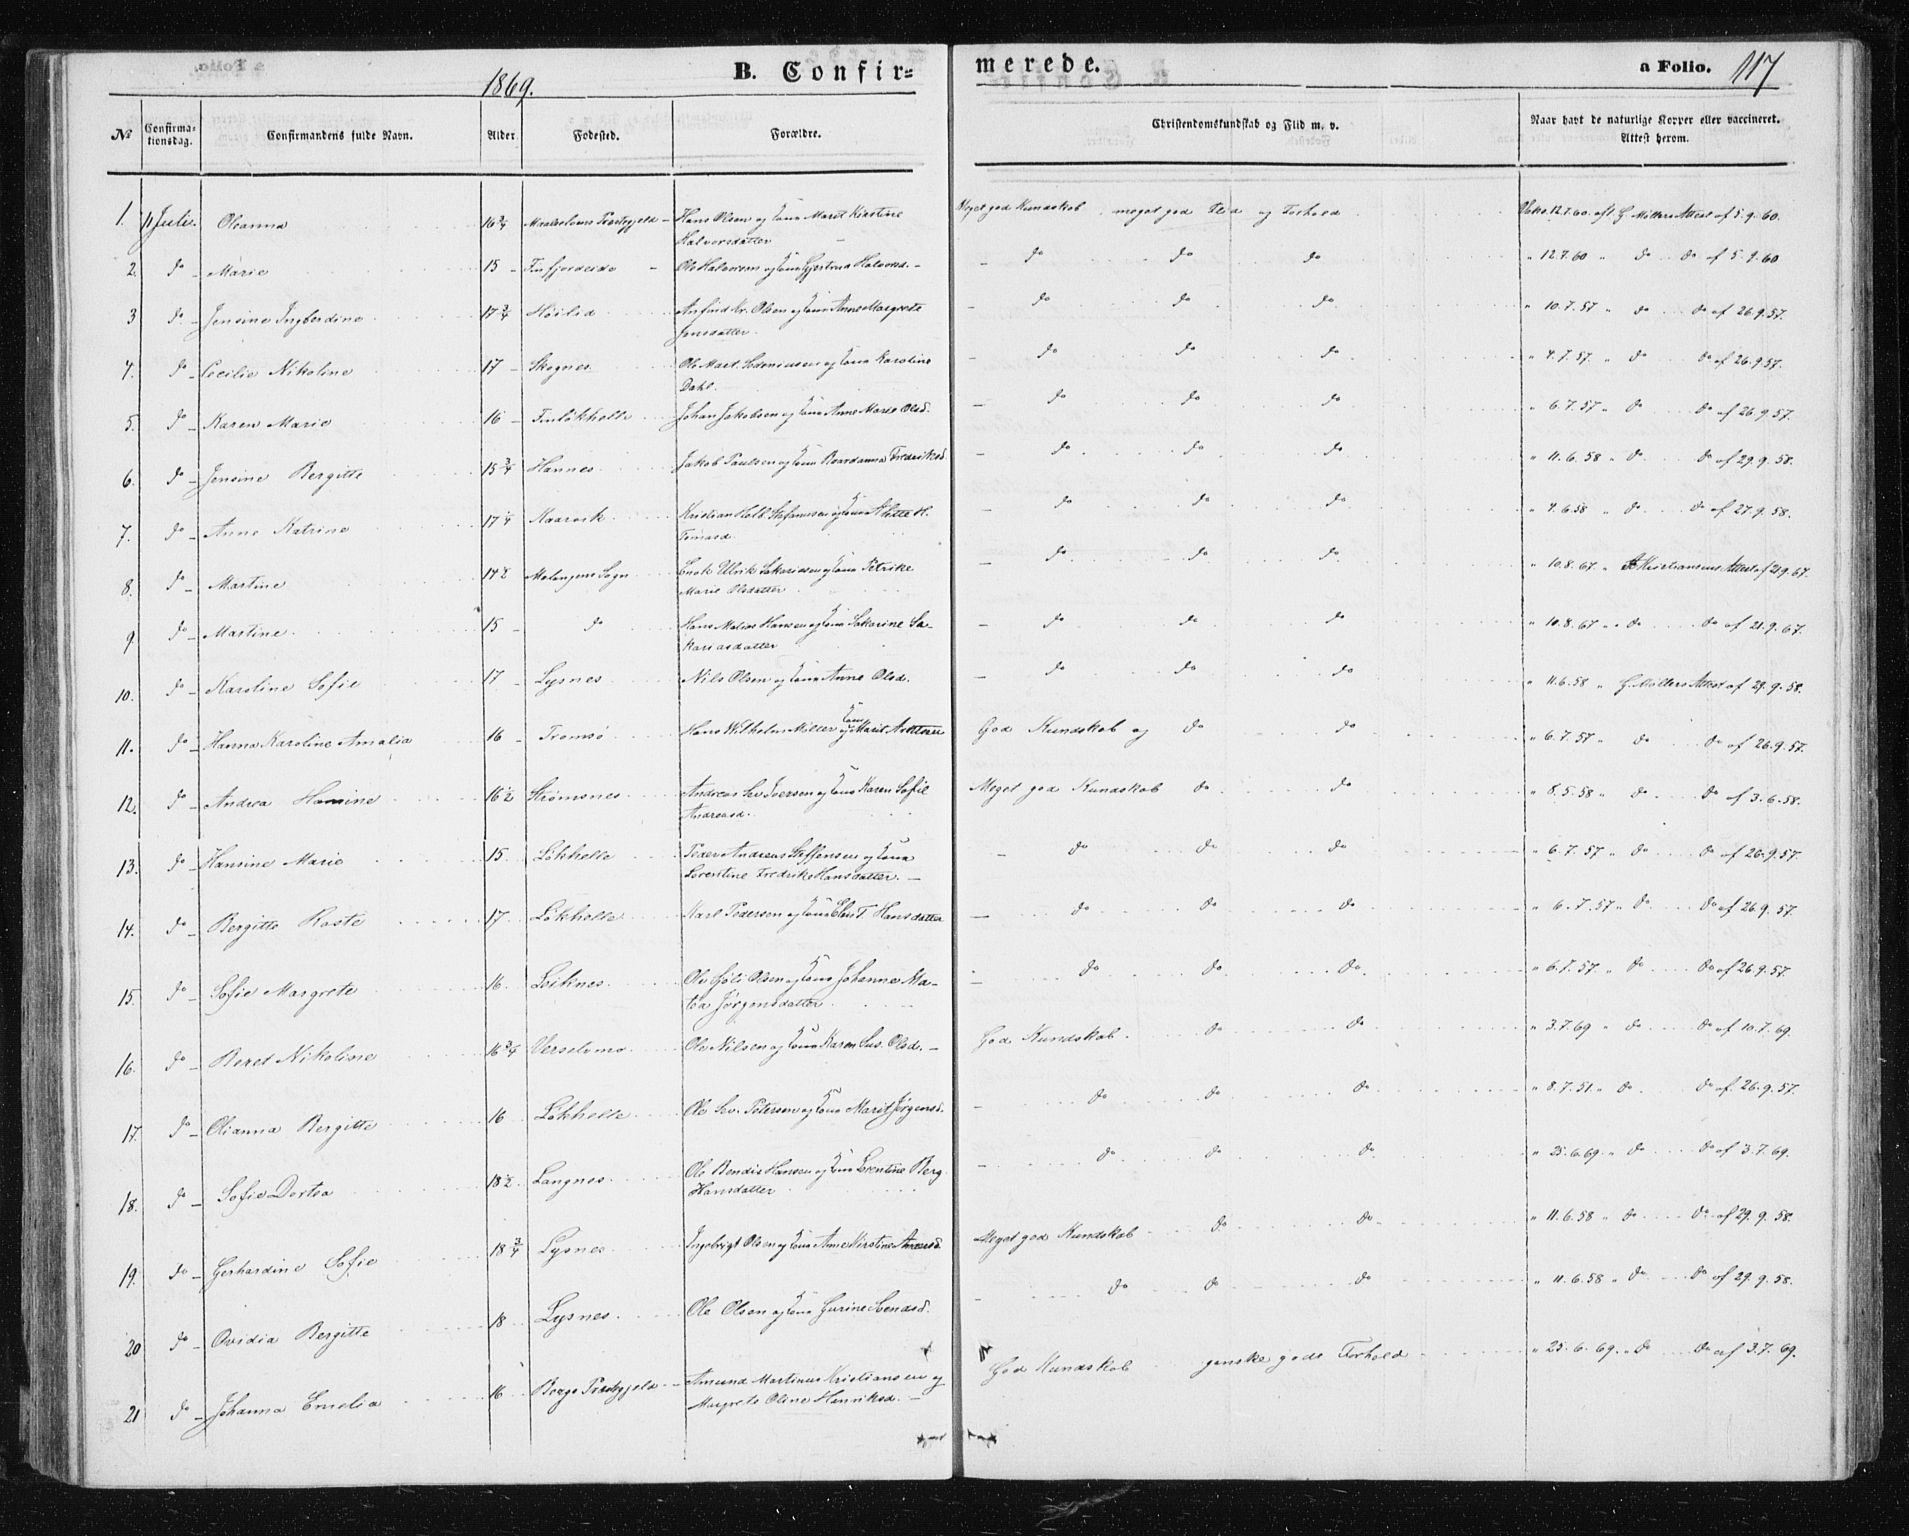 B. Confirmerede.
1869.
a Folio. 117
No Confirmationsdag. Confirmandens fulde Navn. Alder. Fødested. Forældre. Christendomskundskab og Flid m. v. Naar havt de naturlige Kopper eller vaccineret. Attest herom.
1. 11 Juli. Oleanna 16 3/4 Maalselvens Præstegjeld - Hans Olsen og Kone Maret Kirstine Halvorsdatter Meget god Kundskab, meget god Flid og Forhold Vakc. 12.7.60 aft. G Møllers Attest af 5.9.60.
2. do - Marie 15 - Finfjordeide - Ole Halvorsen og Kone Gjertrud Halvorsd. - do do do " 12.7.60 " do do af 5.9.60
3 do - Jensine Ingberdine 17 3/4 Arfind Kr. Olsen og Kone Anne Margrete Jensdatter - do do do " 10.7.57 " do do af 26.9.57.
4. do - Cecilie Nikoline 17 - Skognes Ole Mart. og Kone Karoline Dahl - do do do " 4.7.57. " do do af 26.9.57.
5. do - Karen Marie 16 - Finlökhelle Johan Jakobsen og Kone Anne Marie Olsd. - do do do " 6.7.57 " do do af 26.9.57.
6. do - Jensine Bergitte 15 3/4 Hannes Jakob Paulsen og Kone Beardanna Fredriksd. - do do do " 11.6.58 " do do af 29.9.58.
7. do - Anne Katrine 17 1/4 Kristian Stefansen og Kone - do do do " 4.6.58 " do do af 27.9.58.
8. do - Martine 14 1/2 Malangens Sogn Enok Ulrik Sakariasen og Kone Petrike Marie Olsdatter - do do do " 10.8.67 " Kristiansens Attest af 21.9.67.
9. do - Martine 15 - do Hans Matias Hansen og Kone Sakarine Sakariasdatter - do do do " 10.8.67 " do do af 21.9.67.
10. do - Karoline Sofie 17 - Lysnes Nils Olsen og Kone Anne Olsd. - do do do " 11.6.58 " G. Møllers Attest af 29.9.58.
11. do - Hanna Karoline Amalia 16 - Tromsø Hans Wilhelm Miller og Kone Marit God Kundskab og do do " 6.7.57 " do do af 26.9.57.
12. do - Andrea Hansine 16 1/2 Strømsnes Andreas Sv. Iversen og Kone Karen Sofie Andreasd. Meget god Kundskab do do " 8.5.58 " do do af 3.6.58.
13. do - Hansine Marie 15 Lökhelle Peder Andreas Steffensen og Kone Lorentine Fredrikke Hansdatter. - - do do do " 6.7.57 " do do af 26.9.57.
14. do - Bergitte 17 Lökhelle Karl Pedersen og Kone Hansdatter - do do do " 6.7.57 " do do af 26.9.57.
15. do - Sofie Margrete 16. Leiknes Ole Olsen og Kone Johanna Matea Jørgensdatter - do do do " 6.7.57 " do do af 26.9.57.
16. do - Beret Nikoline 16 3/4 Ole Nilsen og Kone Karen Sus. Olsd. - God Kundskab do do " 3.7.69 " do do af 10.7.69.
17. do - Olianna Bergitte 16 Lökhelle Ole Sv. Petersen og Kone Marit Jørgensd. - do do do " 8.7.51 " do do af 26.9.57.
18. do - Sofie Dortea 18 1/2 Langnes Ole Bendix Hansen og Kone Lorentine Berg. Hansdatter - do do do " 25.6.69 " do do af 3.7.69.
19. do - Gerhardine Sofie 18 3/4 Lysnes Ingebrigt Olsen og Kone Anne Kirstine Meget god Kundskab do do " 11.6.58 " do do af 29.9.58.
20 do - Ovidia Bergitte 18 Lysnes Ole Olsen og Kone Gurine Svendsd. - do do do " 11.6.58 " do do af 29.9.58.
21 do - Johanna Emelia 16 Bergs Præstegjeld - Amund Martinus Kristiansen og Margrete Oline Henriksd. - God Kundskab ganske gode Forhold " 25.6.69. " do do af 3.7.69.